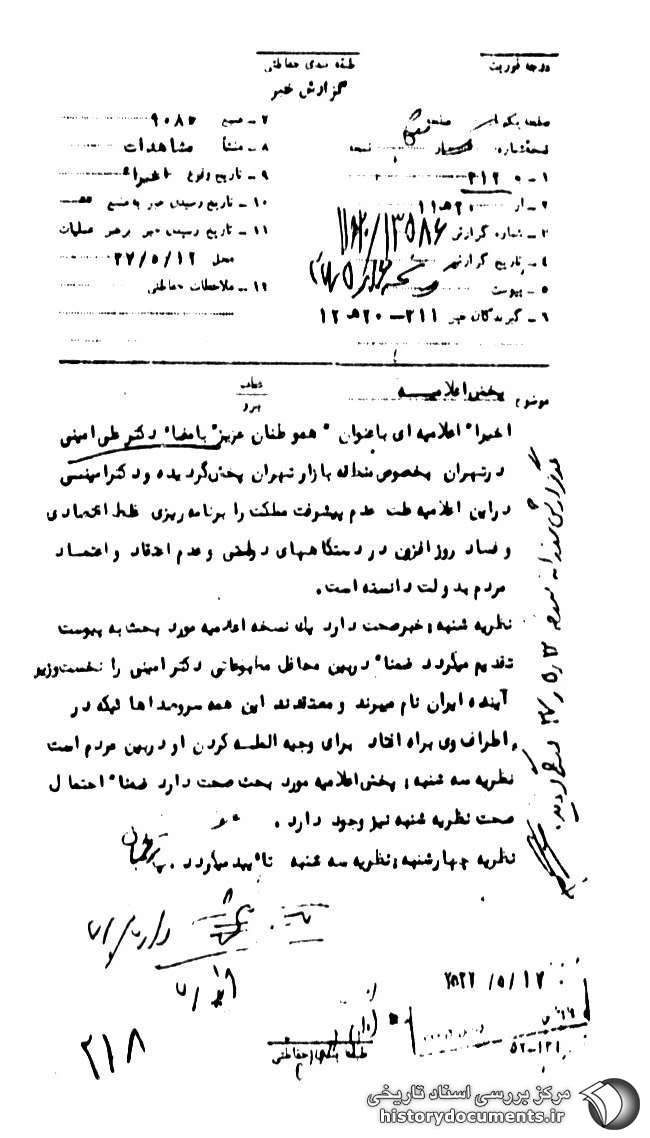 درجه فوریت
طبقه بندی حفاظتی
گزارش خبر
۱ - به ۳۱۲
۲ - از ۲۰ ه‍ ۱۱
۳ - شماره گزارش ۱۳۵۸۶/۲۰ه‍۱۱
۴ - تاریخ گزارش
۵ - پیوست
۶ - گیرندگان خبر ۲۱۱ - ۲۰ ه‍ ۱۲
۷ - منبع ۹۰۸۵
۸ - منشأ مشاهدات
۹ - تاریخ وقوع اخیراً
۱۰ - تاریخ رسیدن خبر به منبع
۱۱ - تاریخ رسیدن خبر به رهبر عملیات
محل ۳۷/۵/۱۲
۱۲ - ملاحظات حفاظتی
موضوع پخش اعلامیه
اخیراً اعلامیه ای باعنوان "هموطنان عزیز" بامضاء دکتر علی امینی
درتهران بخصوص منطقه بازار تهران پخش گردیده و دکترامینی
دراین اعلامیه علت عدم پیشرفت مملکت را برنامه ریزی غلط اقتصادی
و فساد روزافزون در دستگاههای دولتی و عدم اعتقاد و اعتماد
مردم بدولت دانسته است.
نظریه شنبه: خبرصحت دارد یک نسخه اعلامیه مورد بحث به پیوست
تقدیم میگردد ضمناً دربین محافل مطبوعاتی دکترامینی را نخست وزیر
آینده ایران نام میبرند و معتقدند این همه سروصداها ئیکه در
اطراف وی براه افتاد برای وجیه المله کردن او دربین مردم است
نظریه سه شنبه: پخش اعلامیه مورد بحث صحت دارد ضمناً احتمال
صحت نظریه شنبه نیز وجود دارد.
نظریه چهارشنبه: نظریه سه شنبه تائید میگردد.
۲۵۳۷/۵/۱۷
طبقه بندی حفاظتی
۲۱۸
مرکز بررسی اسناد تاریخی
historydocuments.ir